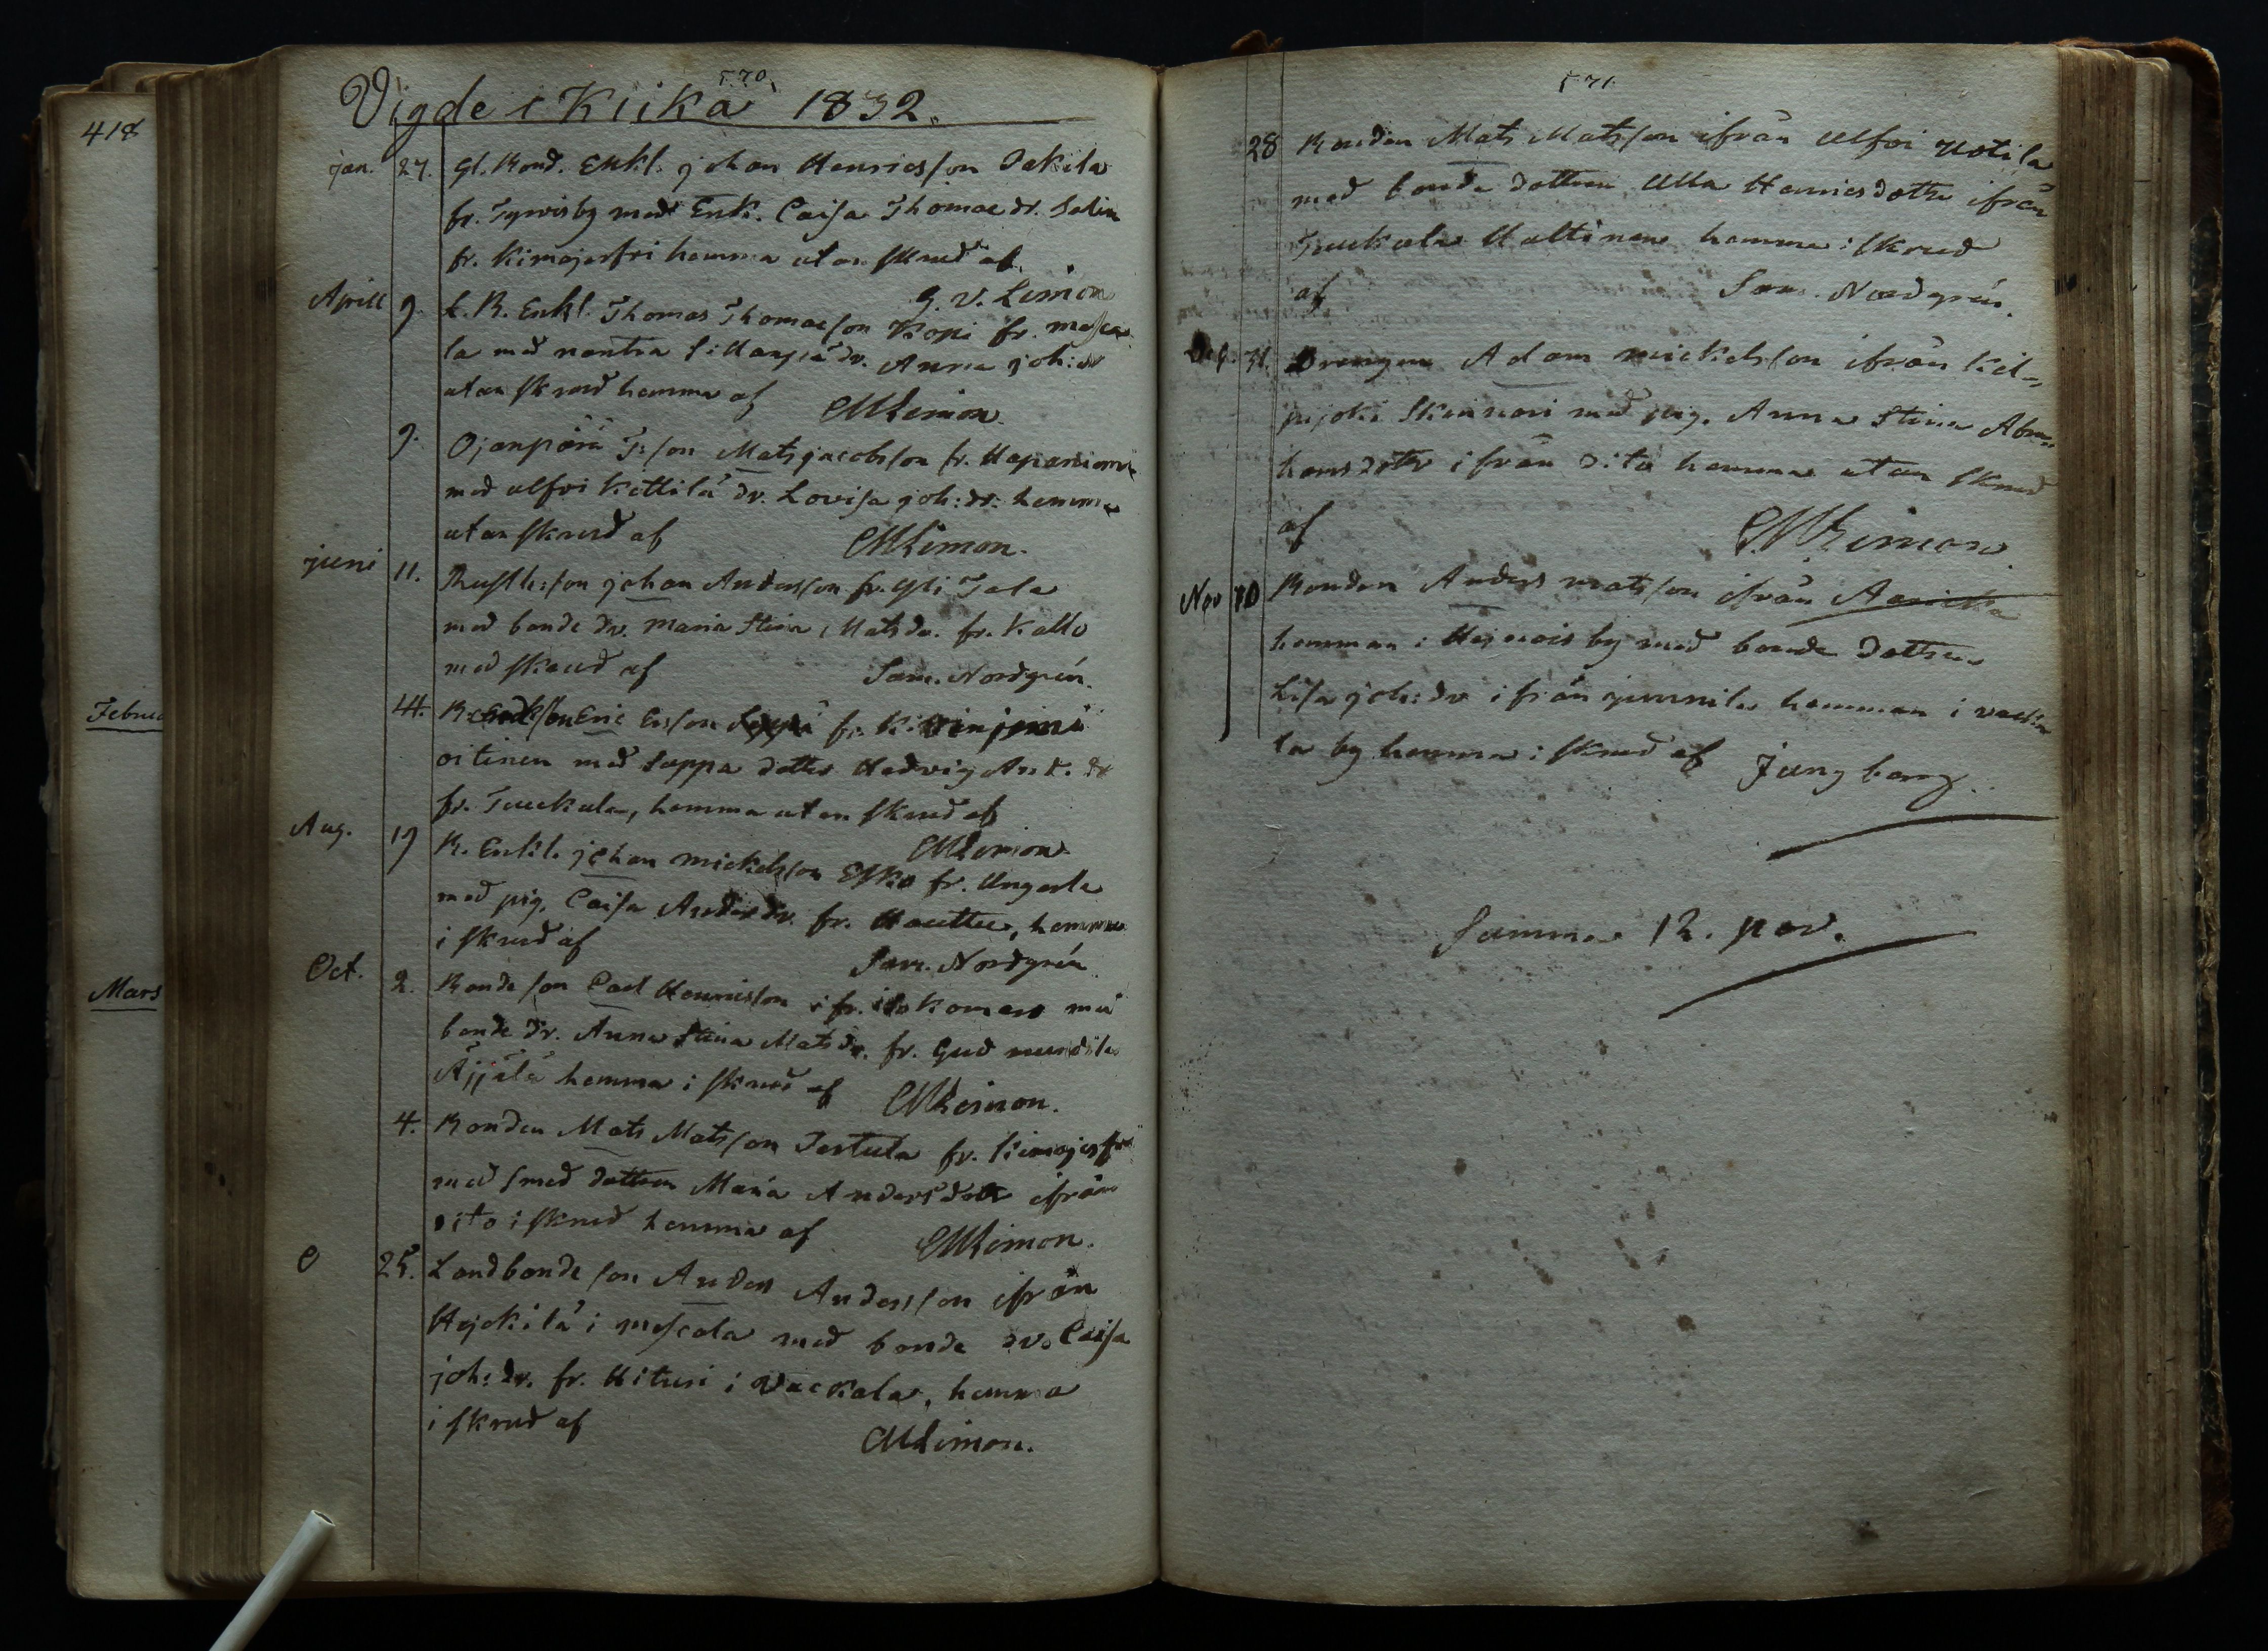 418
Februa
Mars
570
Vigde i Kiika 1832.
jan. 27. gl. Bond. Enkl. johan Henricsson
fr. Tyrvisby med Enk. Caisa Thomae dr. Salin
fr. Kimajerfvi hemma utan skrud af
G. V. Limon
Aprill 9. Enkl. Thomas Thomasson Kopi fr. mosca
la med dr. Anna joh: dr
utan skrud hemma af CMLimon.
9. Ojanperä T:son Mats jacobsson fr. Haparniemi
med ulfvi Kettilä dr. Lovisa joh: dr: hemma
utan skrud af CMLimon.
juni 11. Rusth:son johan Andersson fr. Yli Tala
med bonde dr. maria Stina Mats dr. fr. Kallo
med skrud af Sam. Nordgrén.
14. Eric Ersson fr.
oitinen med Soppa dotter Hedvig And. dr
fr. Teuckula, hemma utan skrud af
CMLimon
Aug. 19 B. Enkl. johan mickelsson Esko fr. Ungerla
med pig. Caisa Anders dr. fr. Houttu, hemma
i skrud af Sam. Nordgrén
Oct. 2. Bonde son Carl Henricsson ifr. med
bonde dr. Anna Stina Mats dr. fr.
Äijälä hemma i skrud af CMLimon.
4. Bonden Mats Matsson Tertula fr.
med smed dottren Maria Anders dotter ifrån
dito i skrud hemma af CMLimon.
25. Landbonde son Anders Andersson ifrån
Hejckilä i moscala med bonde dr. Caisa
joh: dr. fr. Hituri i Vackala, hemma
i skrud af CMLimon.
571
28 Bonden Mats Matsson ifrån Ulfvi Uotila
med bonde dottren Ulla Henricsdotter ifrån
Teuckula Uoltinen hemma i skrud
af Sam. Nordgrén.
31. Drengen Adam mickelsson ifrån Kil=
pijoki Skinnari med pig. Anna Stina Abra=
hams dotter ifrån dito hemma utan skrud
af CMLimon
Nov 10 Bonden Anders matsson ifrån
hemman i by med bonde dottren
Lisa joh: dr ifrån junnila hemman i
la by hemma i skrud af Jungberg.
Summa 12. par.